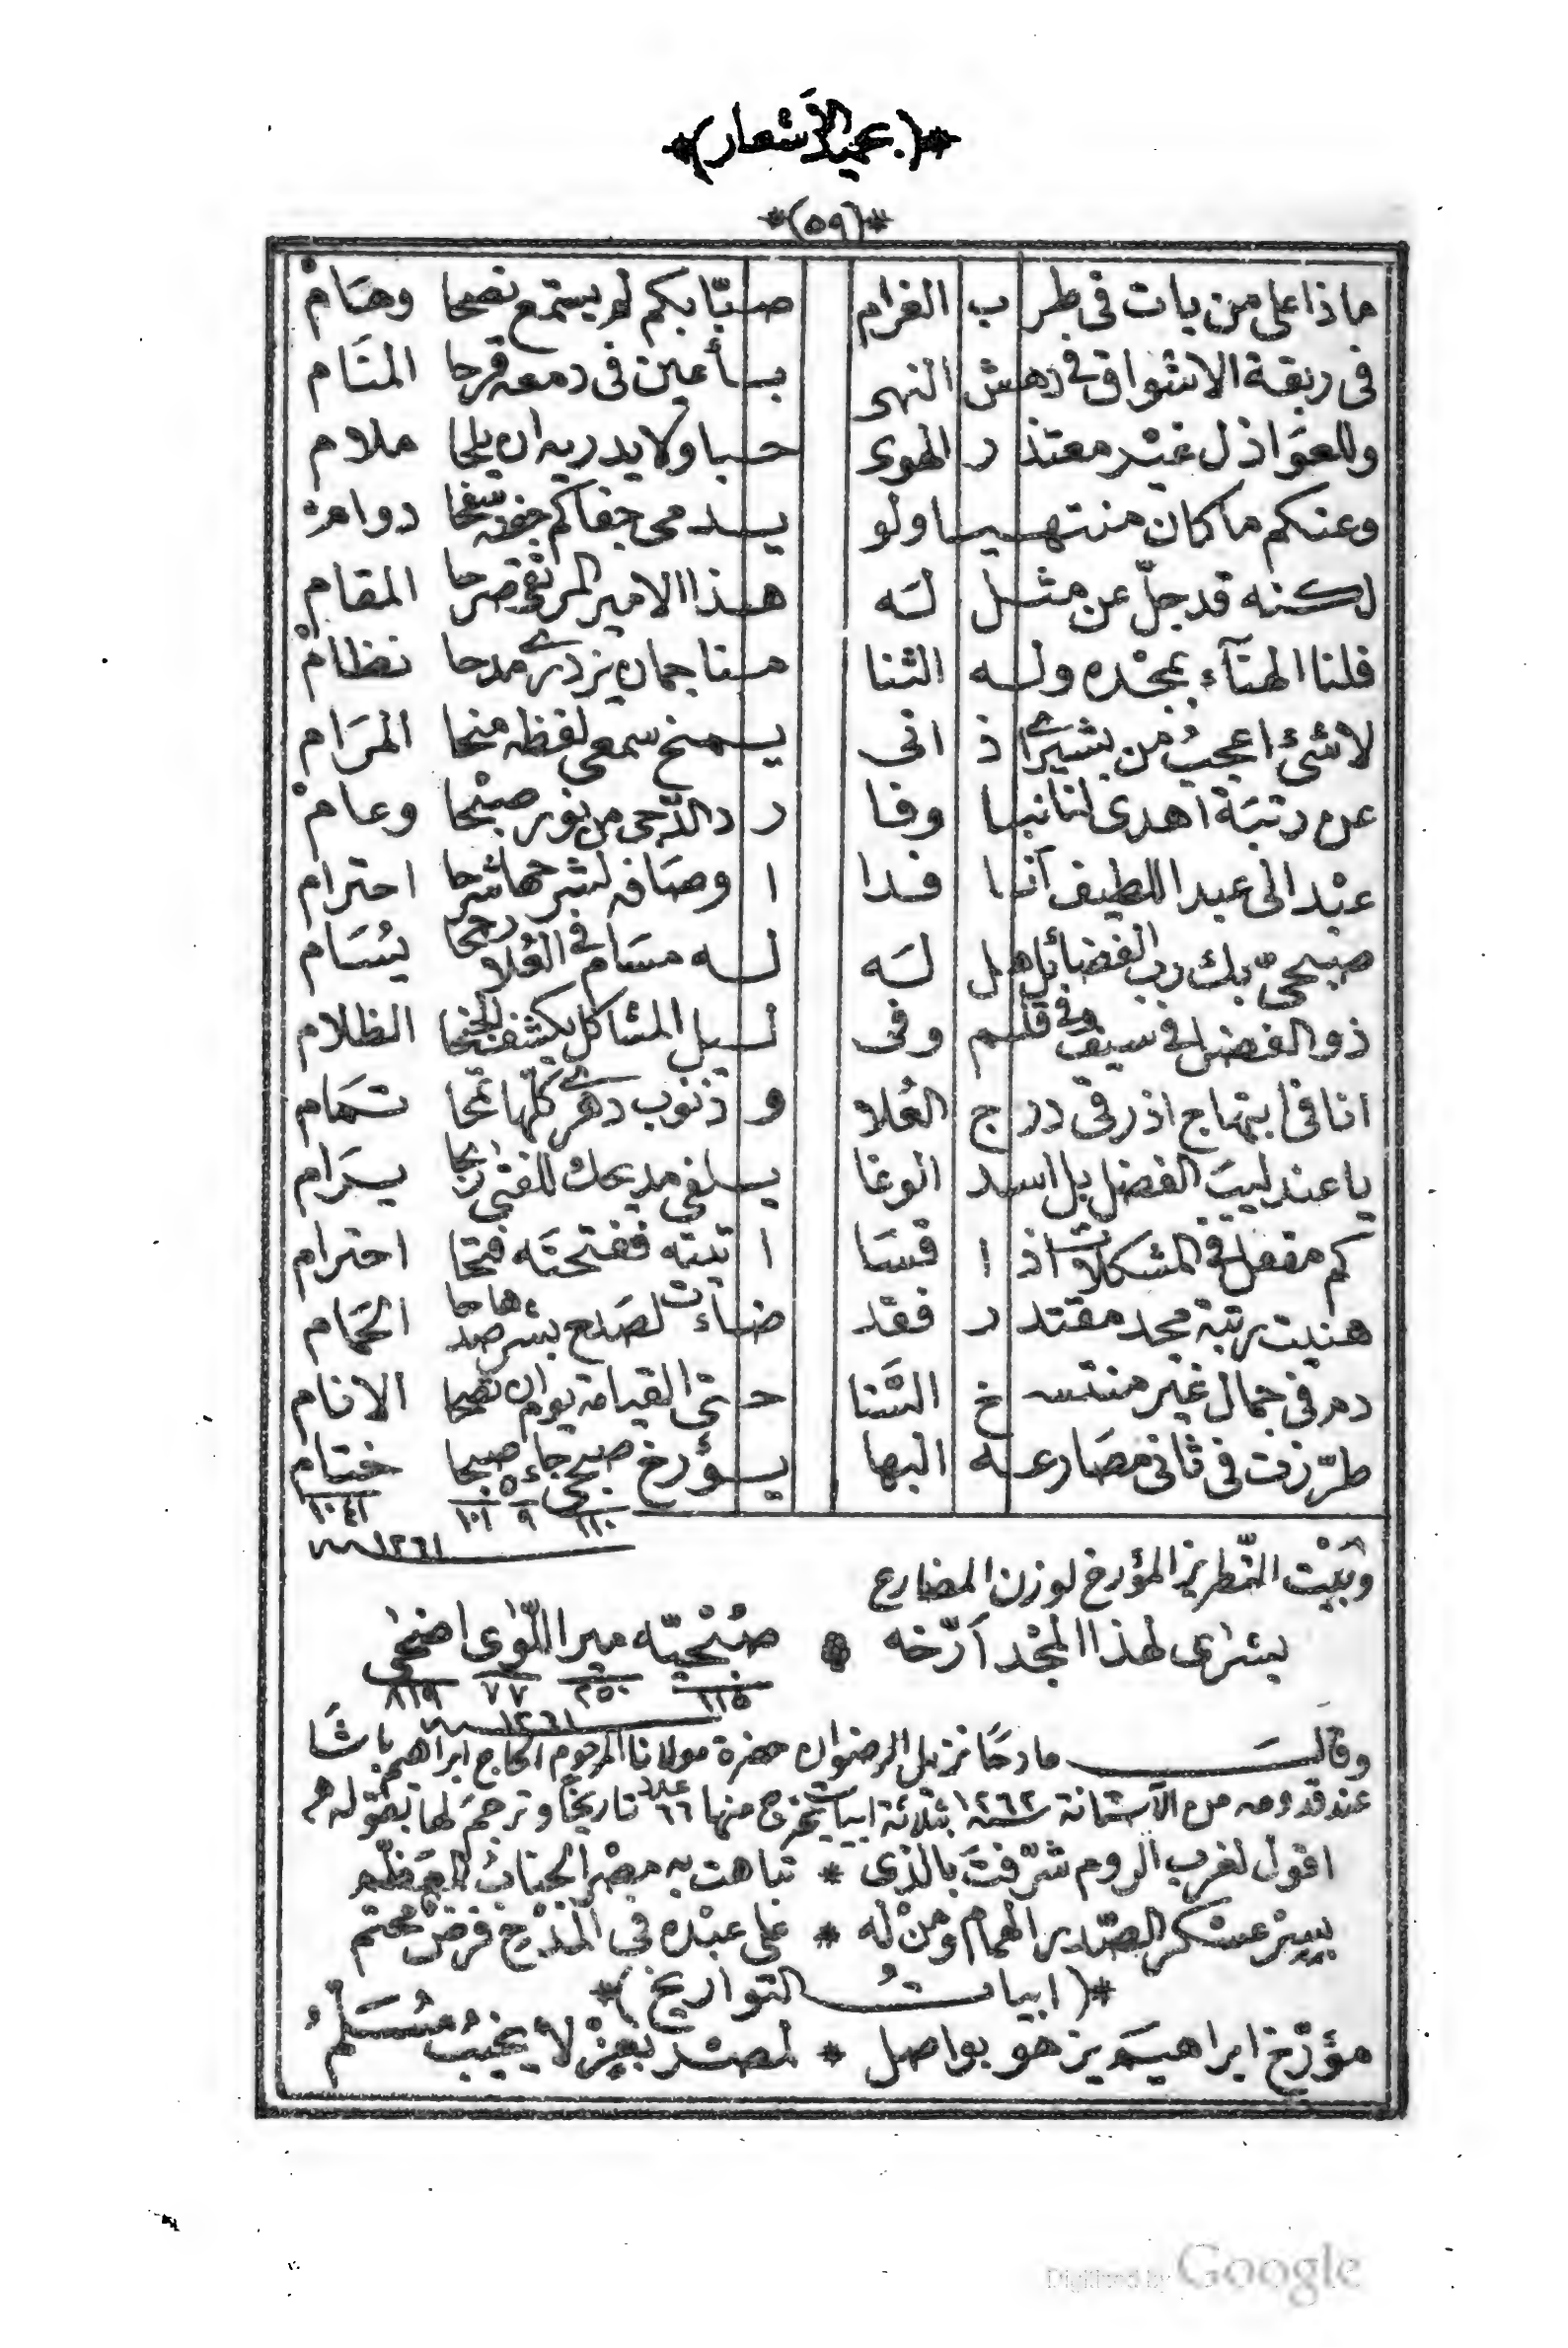 (عميد الأشعار)
*(٥٩)*
ماذا على من بات فى طرب الغرام صبّا بكم لم يستمع نصحا وهام
فى ربقة الاشواق فى دهش النهى بأعين فى دمعه قرحا المنام
وللعواذل غير معتذر الهوى حبا ولا يدريه ان يلحا ملام
وعنكم ما كان منتهيا ولو يدمى جفاكم جفنه سفحا دوام
لكنه قد جلّ عن مثل له هذا الامير المرتقى صرحا المقام
فلنا الهنآء بمجده وله الثنا منا جمان يزدرى مدحا نظام
لا شئ اعجب من بشيرى اذ اتى يمنح سمعى لفظه منحا المرام
عن رتبة اهدى لنا نبا وفا رد الدّجى من نور صبحا وعام
عبد الى عبد اللطيف آنا فدا اوصافه لشرحها شرحا احترام
صبحىّ بك رب الفضائل هل له له مسام فى العُلا رجحا يُسام
ذو الفضل فى سيف وفى قلم وفى ليل المشاكل يكشف الجنحا الظلام
انا فى ابتهاج اذ رقى درج العُلا وذنوب دهرى كلها تمحا تمام
يا عندليب الفضل بل اسد الوغا يلفى مديحك للفتى ربحا يرام
كم مقفل فى المشكلات اذا قسا اتيته ففتحته فتحا احترام
هنيت برتبة مجد مقتدر فقد ضاءت لصدع بشر صدها حا الحمام
دم فى جمال غير منتسخ الثنا حتى القيامة يوم ان تضحا الانام
طرّزت فى ثانى مصارعه البها يؤرخ صبحى جاء صبحا ختام
١١٠ ٩ ١٠١ ١٠٤١
١٢٦١
وبيت التطريز المؤرخ لوزن المضارع
بشراى لهذا المجد أرّخه صبحيّه ميرا اللّوى اضحى
١١٥ ٢٥٠ ٧٧ ٨١٩
١٢٦١
وقال مادحا نزيل الرضوان حضرة مولانا المرحوم الحاج ابراهيم باشا
عند قدومه من الآستانة سنة ١٢٦٢ بثلاثة ابيات تخرج منها عدد ٦٦ تاريخا وترجم لها بقوله
اقول لغرب الروم شرّفت بالذى * تباهت به مصر الجناب المعظّم
بسر عسكر الصدر الهمام ومن له * على عبده فى المدح فرض محتم
*(ابيات التواريخ)*
مؤرّخ ابراهيم يزهو بواصل * لمصر بعز لا يخيب مسلم
Digitized by Google